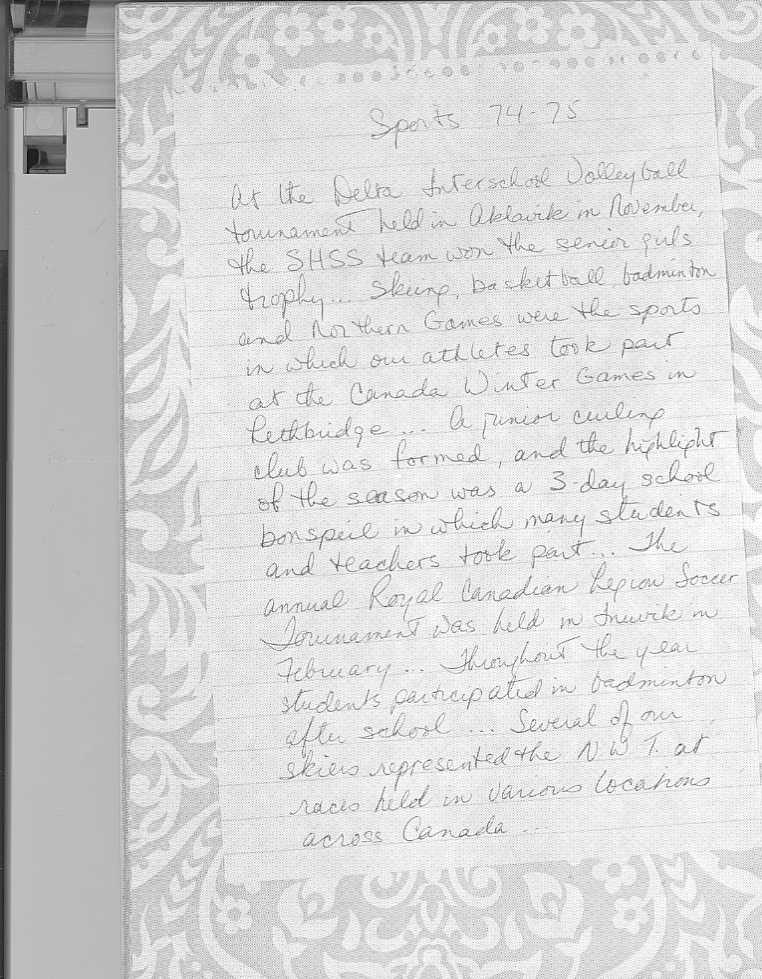 Sports 74-75
At the Delta Interschool Volleyball
tournament held in Aklavik in November,
the SHSS team won the senior girls
trophy... Skiing, basketball, badminton
and Northern Games were the sports
in which our athletes took part
at the Canada Winter Games in
Lethbridge ... A junior curling
club was formed, and the highlight
of the season was a 3-day school
bonspeil in which many students
and teachers took part... The
annual Royal Canadian Legion Soccer
Tournament was held in Inuvik in
February ... Throughout the year
students participated in badminton
after school ... Several of our
skiers represented the N.W.T. at
races held in various locations
across Canada ...